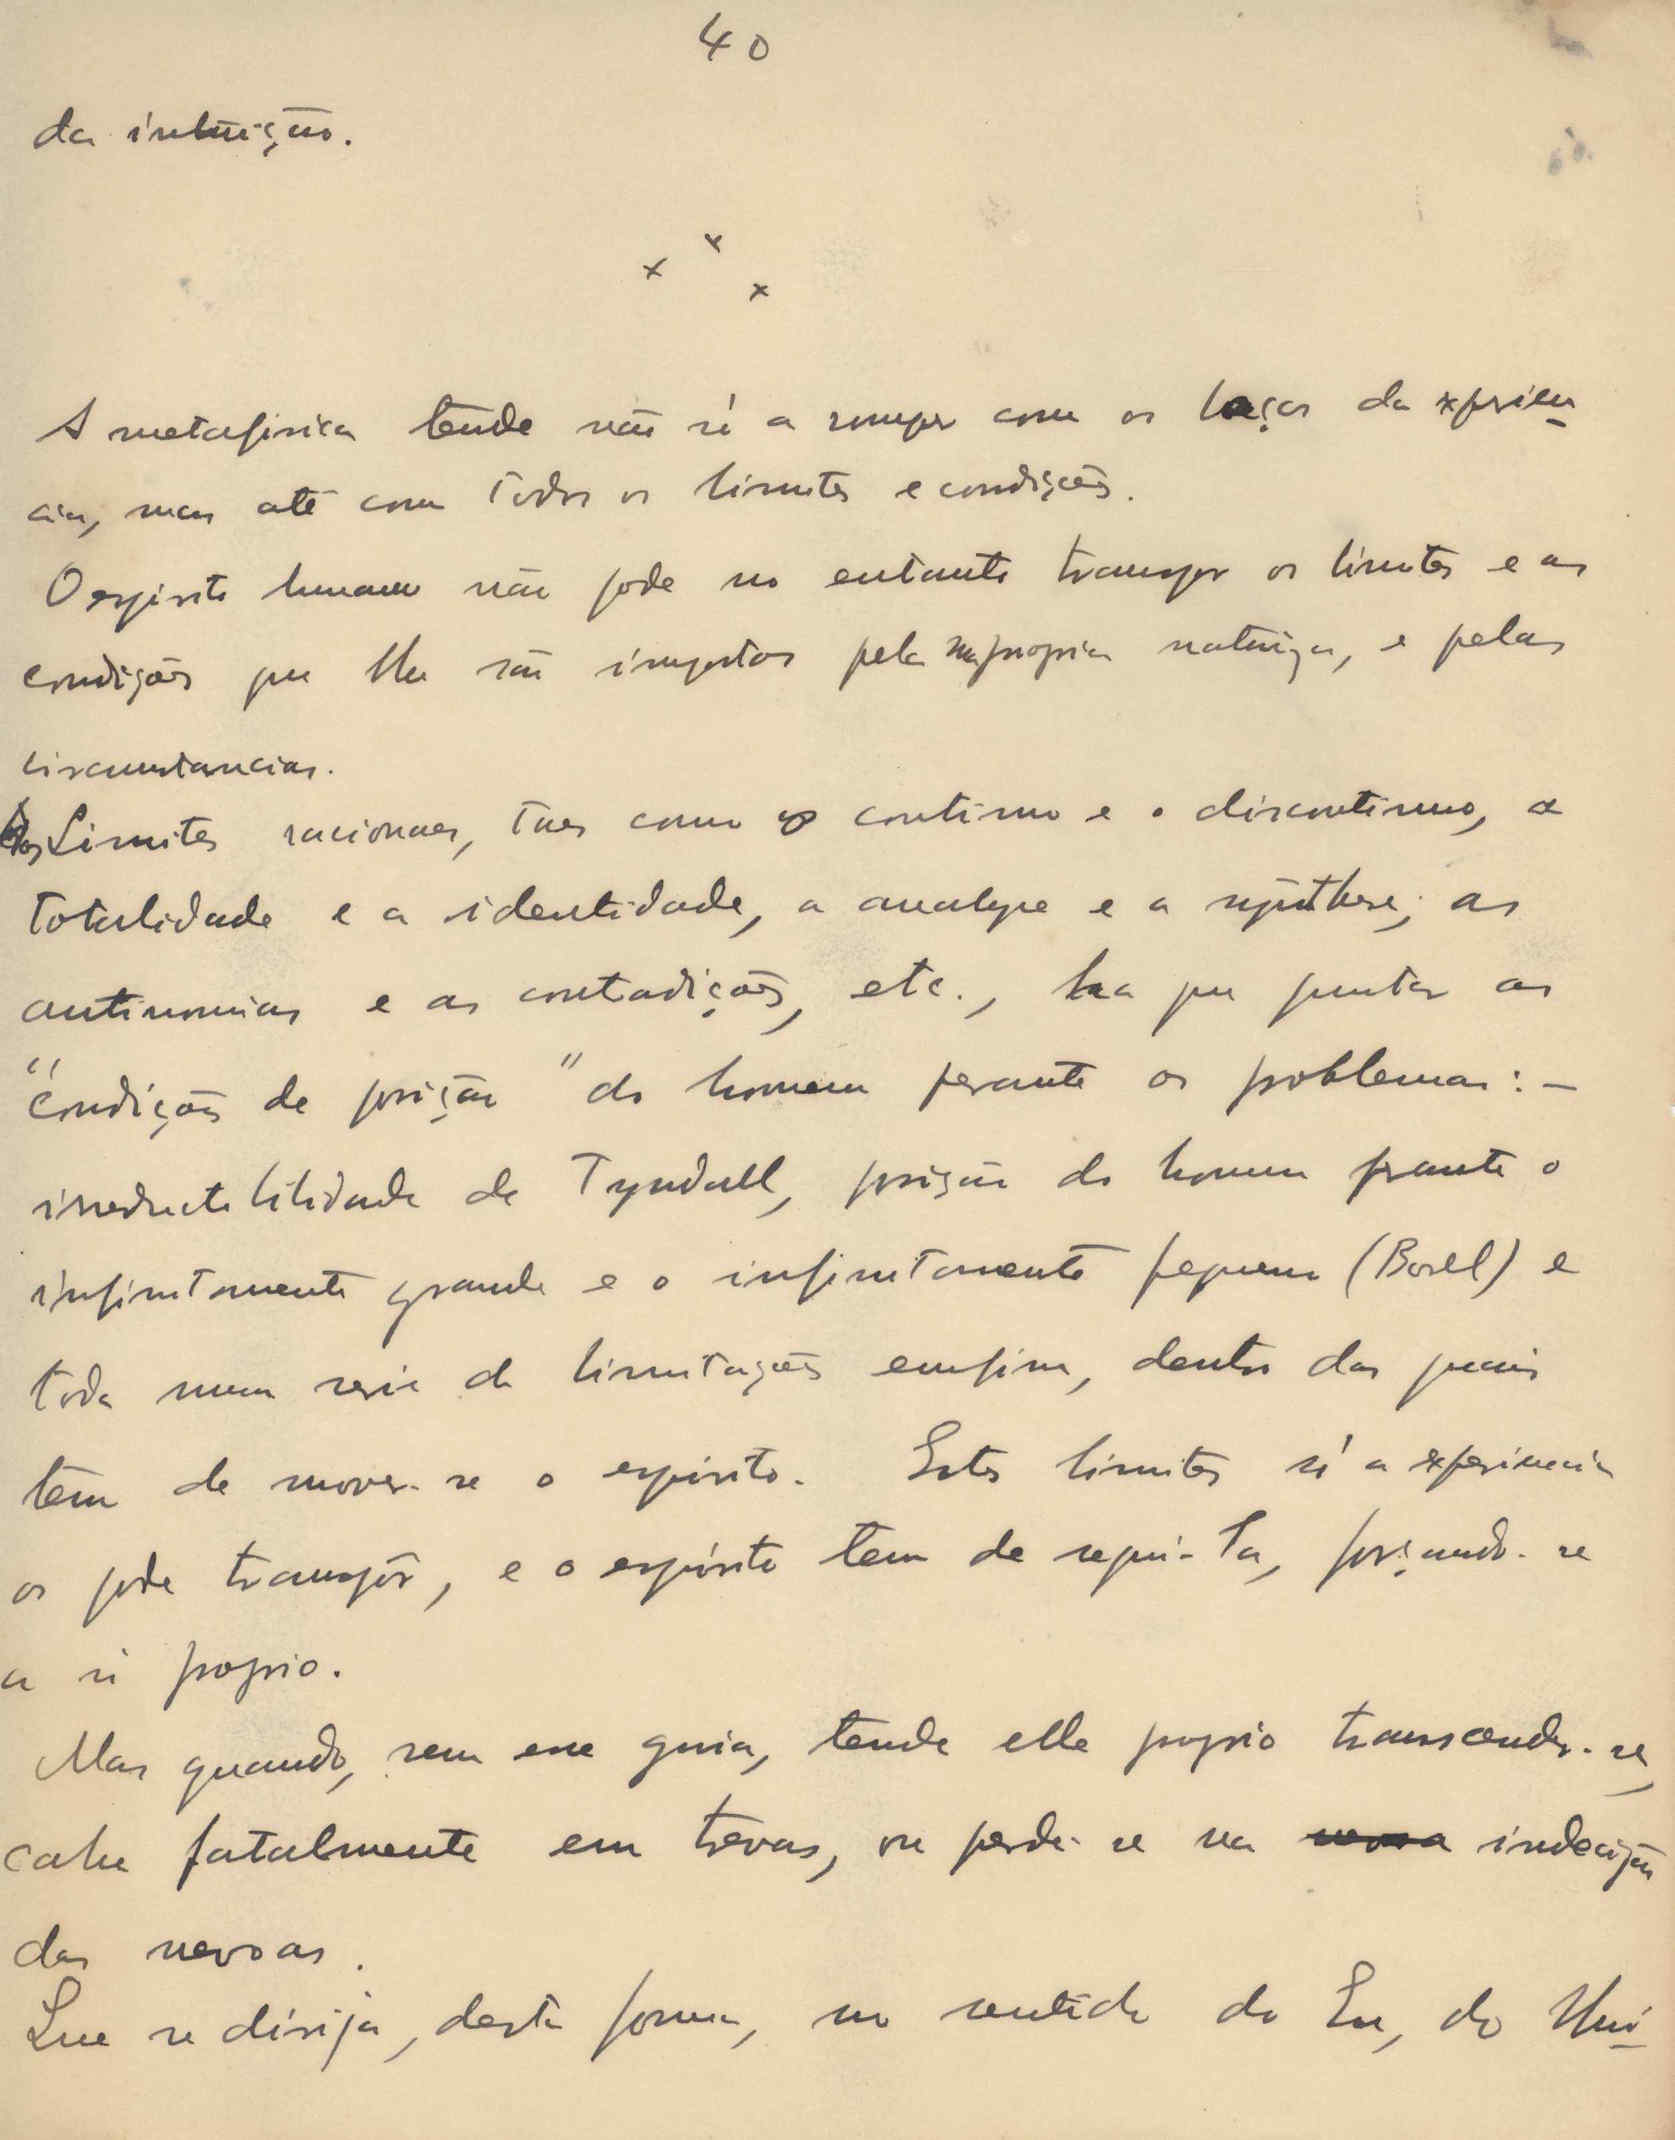 40
da intuição.
x x x
A metafisica tende não só a romper com os laços da experien-
cia, mas até com todos os limites e condições.
O espirito humano não pode no entanto transpor os limites e as
condições que lhe são impostas pela sua propria natureza, e pelas
circumstancias.
Aos Limites racionaes, taes como o continuo e o discontinuo, a
totalidade e a identidade, a analyse e a synthese; as
antinomias e as contradições, etc., ha que juntar as
"condições de posição" do homem perante os problemas: -
irreductibilidade de Tyndall, posição do homem perante o
infinitamente grande e o infinitamente pequeno (Borel) e
toda uma serie de limitações emfim, dentro das quais
tem de mover-se o espirito. Estes limites só a experiencia
os pode transpôr, e o espirito tem de segui-la, forçando-se
a si proprio.
Mas quando, sem esse guia, tende elle proprio transcender-se,
cahe fatalmente em trevas, ou perde-se na nevoa indecisão
das nevoas.
Que se dirija, desta forma, no sentido do Eu, do Uni-